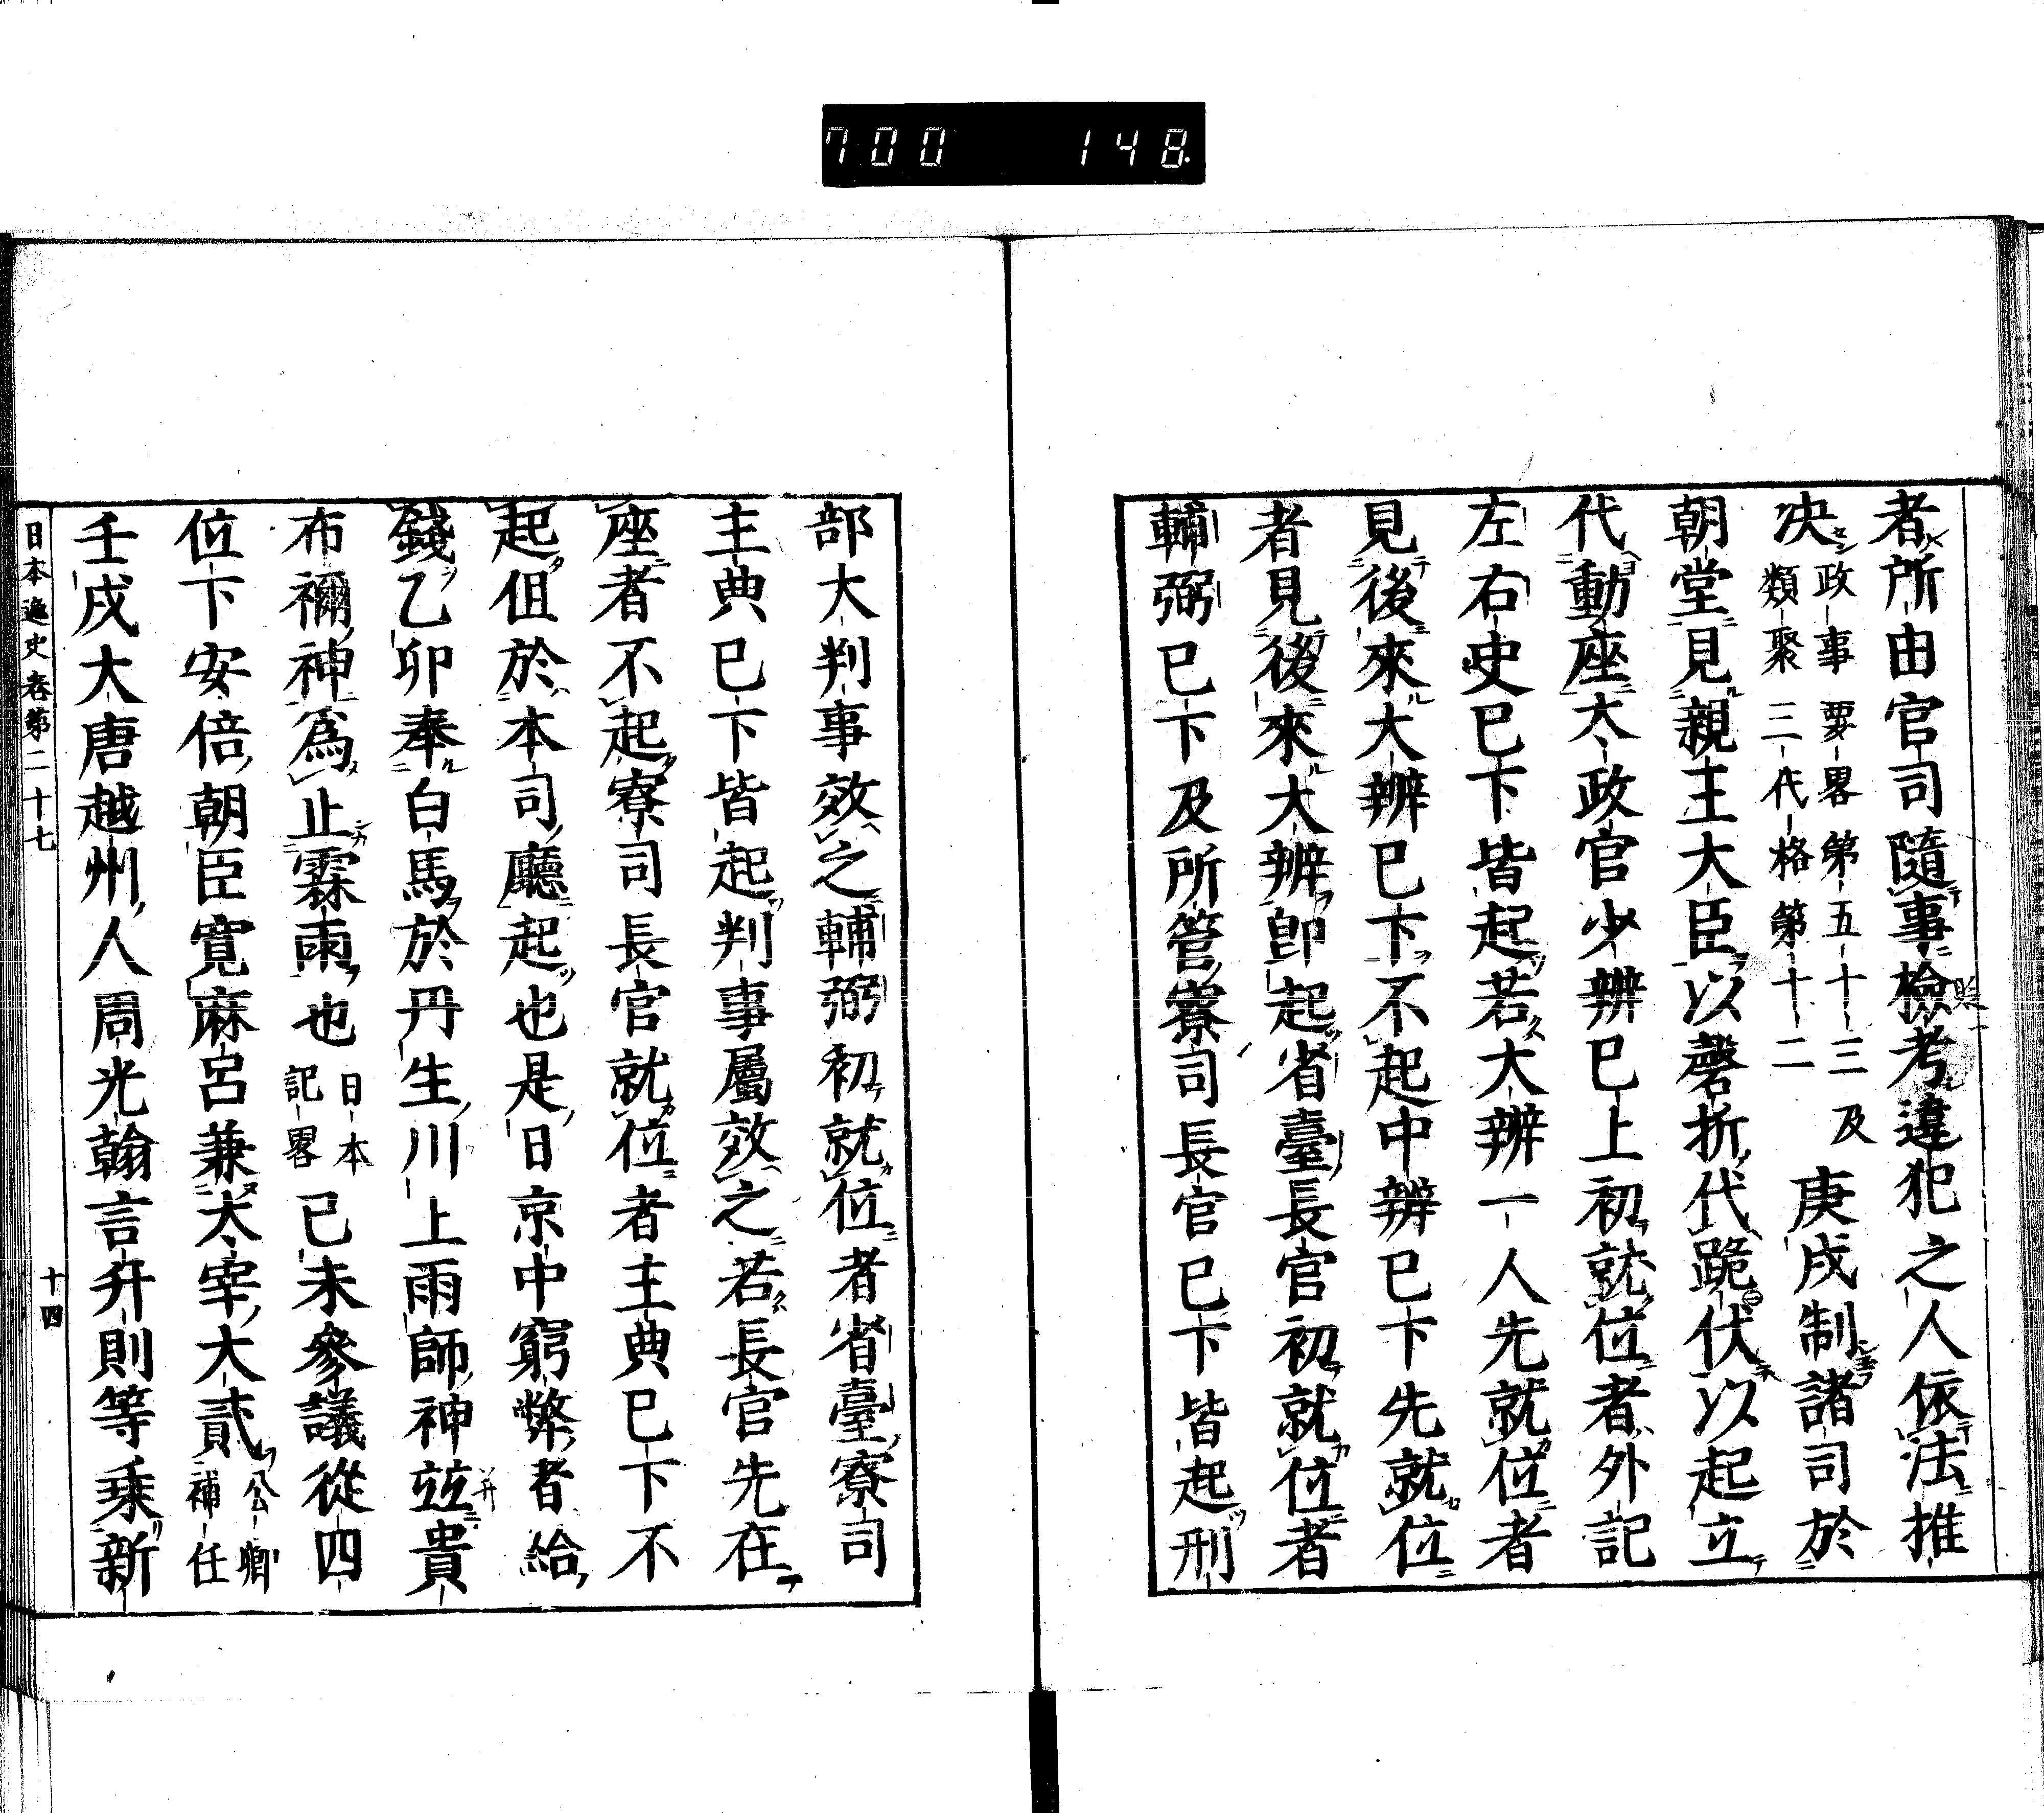 700 148
者所由官司隨事檢考違犯之人依法推
决政事要畧第五十三及類聚三代格第十二庚戌制諸司於
朝堂見親王大臣以磬折代跪伏以起立
代動座太政官少辨已上初就位者外記
左右史已下皆起若大辨一人先就位者
見後來大辨已下不起中辨已下先就位
者見後來大辨卽起省臺長官初就位者
輔弼已下及所管寮司長官已下皆起刑
部大判事效之輔弼初就位者省臺寮司
主典已下皆起判事屬效之若長官先在
座者不起寮司長官就位者主典已下不
起但於本司廳起也是日京中窮弊者給
錢乙卯奉白馬於丹生川上雨師神竝貴
布禰神爲止霖雨也日本記畧己未參議從四
位下安倍朝臣寛麻呂兼太宰大貳公卿補任
壬戌大唐越州人周光翰言升則等乗新
日本逸史卷第二十七 十四